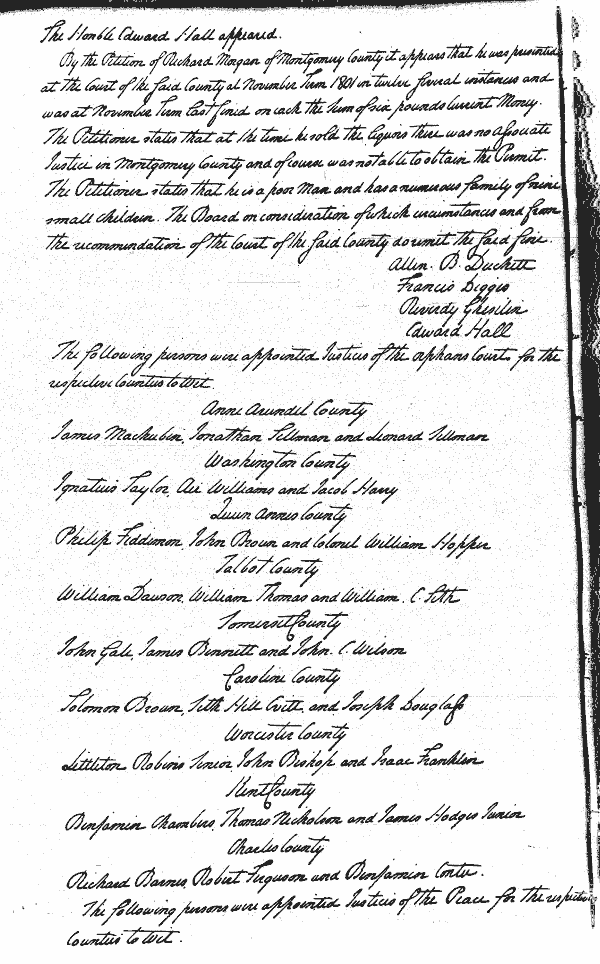 The Honble Edward Hall appeared.
By the Petition of Richard Morgan of Montgomery County it appears that he was presented
at the Court of the said County at November Term 1801 in twelve several instances and
was at November Term last fined on each the sum of six pounds current Money.
The Petitioner states that at the time he sold the liquors there was no associate
Justice in Montgomery County and of course was not able to obtain the Permit.
The Petitioner states that he is a poor Man and has a numerous family of nine
small children. The Board on consideration of which circumstances and from
the recommendation of the Court of the said County do remit the said fine.
Allen. B. Duckett
Francis Digges
Reverdy Ghiselin
Edward Hall
The following persons were appointed Justices of the orphans Courts for the
respective Counties to Wit.
Anne Arundel County
James Mackubin, Jonathan Sellman and Leonard Sellman
Washington County
Ignatius Taylor, Williams and Jacob Harry
Queen Annes County
Philip Feddimon, John Brown and Colonel William Hopper
Talbot County
William Dawson, William Thomas and William. C. Seth
Somerset County
John Gale, James Bennett and John. C. Wilson
Caroline County
Solomon Brown, Seth Hill Evitt, and Joseph Douglass
Worcester County
Littleton Robins Senior, John Bishop and Isaac Franklin
Kent County
Benjamin Chambers, Thomas Nicholson and James Hodges Junior
Charles County
Richard Barnes, Robert Ferguson and Benjamin Contee.
The following persons were appointed Justices of the Peace for the respective
Counties to Wit.